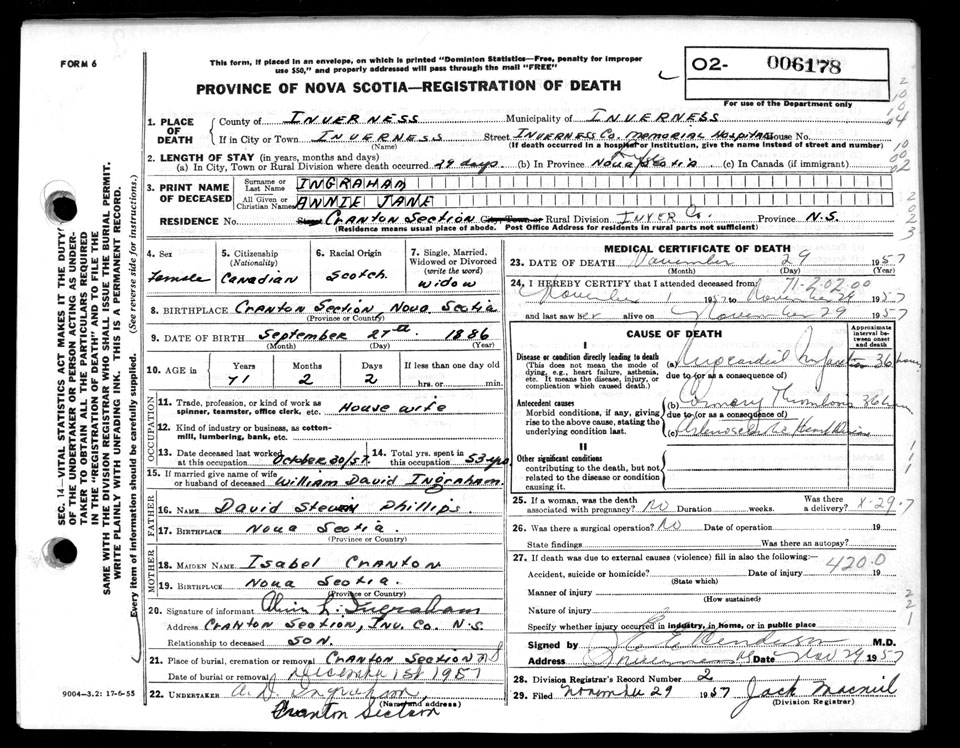 FORM 6
This form, if placed in an envelope, on which is printed "Dominion Statistics—Free, penalty for improper
use $50," and properly addressed will pass through the mail "FREE"
PROVINCE OF NOVA SCOTIA—REGISTRATION OF DEATH
O2- 006178
For use of the Department only
1. PLACE OF DEATH
County of INVERNESS Municipality of INVERNESS
If in City or Town INVERNESS Street INVERNESS Co. Memorial Hospital House No.
(Name) (If death occurred in a hospital or institution, give the name instead of street and number)
2. LENGTH OF STAY (in years, months and days)
(a) In City, Town or Rural Division where death occurred 29 days. (b) In Province Nova Scotia. (c) In Canada (if immigrant)
3. PRINT NAME OF DECEASED
Surname or Last Name INGRAHAM
All Given or Christian Names ANNIE JANE
RESIDENCE No. Street Cranton Section City Town or Rural Division INVER Co. Province N.S.
(Residence means usual place of abode. Post Office Address for residents in rural parts not sufficient)
4. Sex
Female
5. Citizenship
(Nationality)
Canadian
6. Racial Origin
Scotch
7. Single, Married, Widowed or Divorced
(write the word)
Widow
8. BIRTHPLACE Cranton Section Nova Scotia
(Province or Country)
9. DATE OF BIRTH September 27th 1886
(Month) (Day) (Year)
10. AGE in
Years Months Days If less than one day old
71 2 2 hrs. or min.
OCCUPATION
11. Trade, profession, or kind of work as
spinner, teamster, office clerk, etc. House wife
12. Kind of industry or business, as cotton-
mill, lumbering, bank, etc.
13. Date deceased last worked at this occupation October 30/57.
14. Total yrs. spent in this occupation 53 yrs.
15. If married give name of wife
or husband of deceased William David Ingraham.
FATHER
16. NAME David Steven Phillips.
17. BIRTHPLACE Nova Scotia.
(Province or Country)
MOTHER
18. MAIDEN NAME Isabel Cranton
19. BIRTHPLACE Nova Scotia.
(Province or Country)
20. Signature of informant Alvin L. Ingraham
Address Cranton Section, Inv. Co. N.S.
Relationship to deceased Son.
21. Place of burial, cremation or removal Cranton Section NS
Date of burial or removal December 1st 1957
22. UNDERTAKER A. D. Ingraham,
(Name and address)
Cranton Section
9004—3.2: 17-6-55
MEDICAL CERTIFICATE OF DEATH
23. DATE OF DEATH November 29 1957
(Month) (Day) (Year)
24. I HEREBY CERTIFY that I attended deceased from
71-2.02.00
November 1 1957 to November 29 1957
and last saw her alive on November 29 1957
CAUSE OF DEATH
Approximate interval between onset and death
I
Disease or condition directly leading to death
(This does not mean the mode of dying, e.g., heart failure, asthenia, etc. It means the disease, injury, or complication which caused death.)
(a) Myocardial Infarction 36 hours
due to (or as a consequence of)
Antecedent causes
Morbid conditions, if any, giving rise to the above cause, stating the underlying condition last.
(b) Coronary Thrombosis 36 hours
due to (or as a consequence of)
(c) Arteriosclerotic Heart Disease
II
Other significant conditions
contributing to the death, but not related to the disease or condition causing it.
25. If a woman, was the death associated with pregnancy? No Duration weeks. Was there a delivery?
X-29.7
26. Was there a surgical operation? No Date of operation 19
State findings Was there an autopsy?
27. If death was due to external causes (violence) fill in also the following:—
420.0
Accident, suicide or homicide? Date of injury 19
(State which)
Manner of injury
(How sustained)
Nature of injury
Specify whether injury occurred in industry, in home, or in public place
Signed by Henderson M.D.
Address Inverness Date Nov 29 1957
28. Division Registrar's Record Number 2
29. Filed November 29 1957 Jack Macneil
(Division Registrar)
SEC. 14—VITAL STATISTICS ACT MAKES IT THE DUTY
OF THE UNDERTAKER OR PERSON ACTING AS UNDER-
TAKER TO OBTAIN ALL THE PARTICULARS REQUIRED
IN THE "REGISTRATION OF DEATH" AND TO FILE THE
SAME WITH THE DIVISION REGISTRAR WHO SHALL ISSUE THE BURIAL PERMIT.
WRITE PLAINLY WITH UNFADING INK. THIS IS A PERMANENT RECORD.
Every item of information should be carefully supplied. (See reverse side for instructions.)